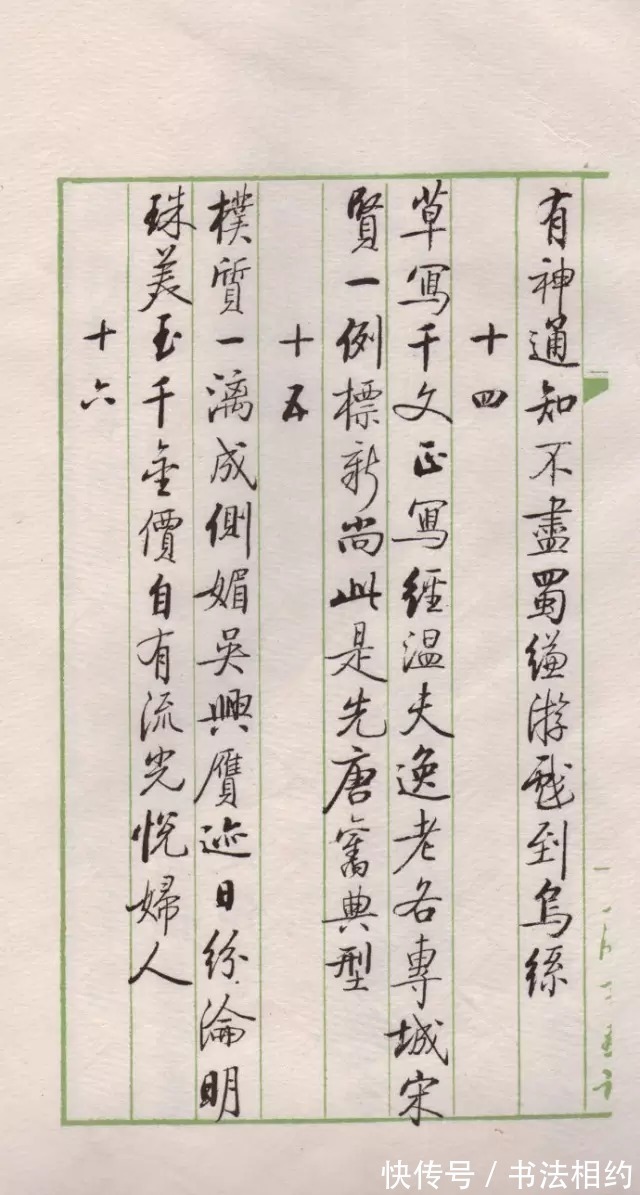 有神通知不盡蜀縑游戲到烏絲
十四
草寫千文正寫經温夫逸老各專城宋
賢一例標新尚此是先唐舊典型
十五
樸質一漓成側媚吳興贋迹日紛淪明
珠美玉千金價自有流光悦婦人
十六
快传号 / 书法相约